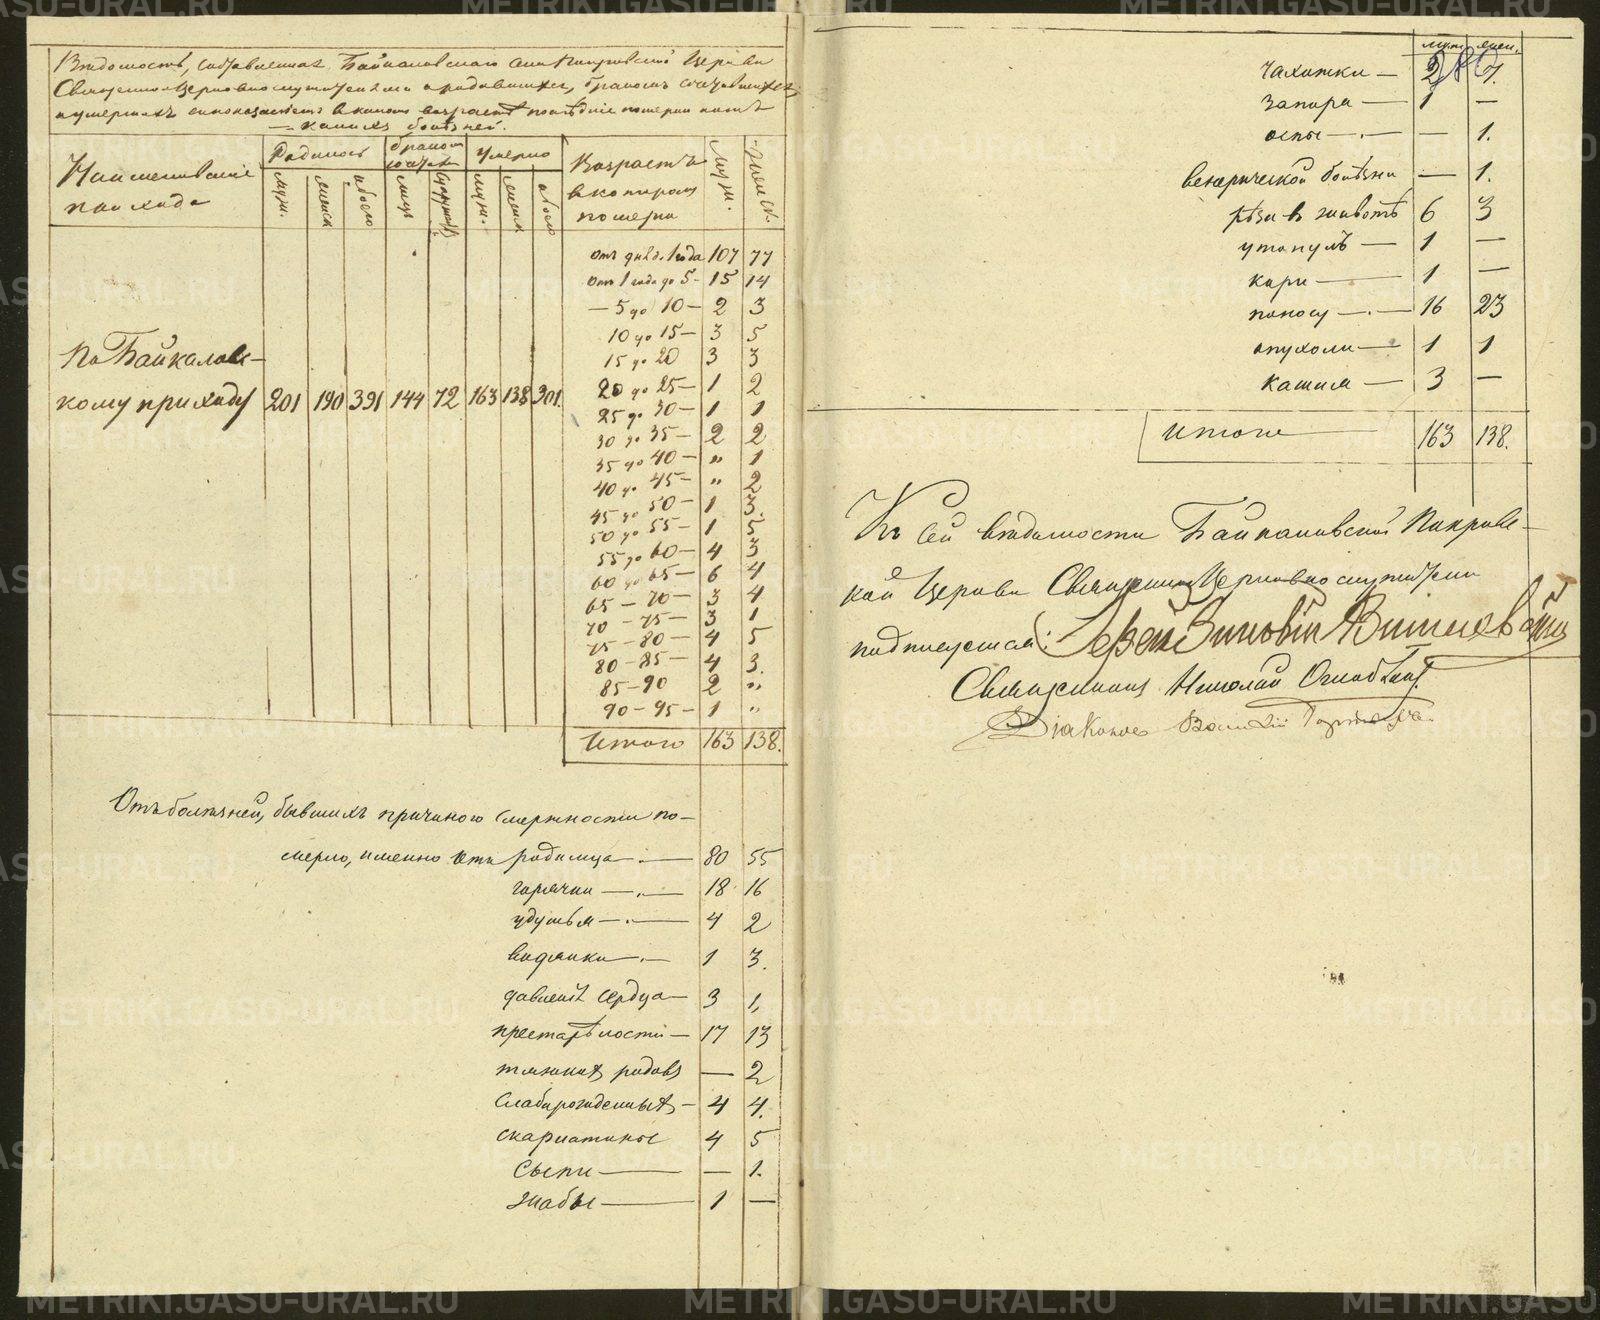 Вѣдомость, составленная Байкаловскаго села Покровской Церкви
Священноцерковнослужителями о родившихся, бракомъ сочетавшихся,
и умершихъ съ показаніемъ въ какомъ возрастѣ послѣдніе померли и отъ
какихъ болѣзней.
Наименованіе прихода
Родилось
бракомъ сочет.
Умерло
Возрастъ въ которомъ померли
муж.
женск.
муж.
женск.
обоего
лицъ
супруж.
муж.
женск.
обоего
отъ дня до 1 года 107 77
отъ 1 года до 5 - 15 14
— 5 до 10 — 2 3
10 до 15 — 3 5
15 до 20 3 3
По Байкаловс-
кому приходу 201 190 391 144 72 163 138 301.
20 до 25 — 1 2
25 до 30 — 1 1
30 до 35 — 2 2
35 до 40 — „ 1
40 до 45 — „ 2
45 до 50 — 1 3.
50 до 55 — 1 5
55 до 60 — 4 3
60 до 65 — 6 4
65 — 70 — 3 4
70 — 75 — 3 1
75 — 80 — 4 5
80 — 85 — 4 3.
85 — 90 2 „
90 — 95 — 1 „
Итого 163 138.
Отъ болѣзней, бывшихъ причиною смертности по-
мерло, именно отъ родимца — 80 55
горячки — 18 16
удушья — 4 2
водянки — 1 3.
давленія сердца — 3 1,
престарѣлости — 17 13
тяжкихъ родовъ — 2
слаборожденныхъ — 4 4.
скарлатины 4 5
сыпи — — 1.
жабы — 1 —
муж. жен.
280
чахотки — 2 7.
запора — 1 —
оспы — — 1.
венерической болѣзни — 1.
рѣзи въ животѣ 6 3
утонулъ — 1 —
кори — 1 —
поносу — 16 23
опухоли — 1 1
кашля — 3 —
Итого 163 138.
Къ сей вѣдомости Байкаловской Покровс-
кой Церкви Священноцерковнослужители
подписуемся: Іерей Зиновій
Священникъ Николай
Діаконъ Василій
METRIKI.GASO-URAL.RU